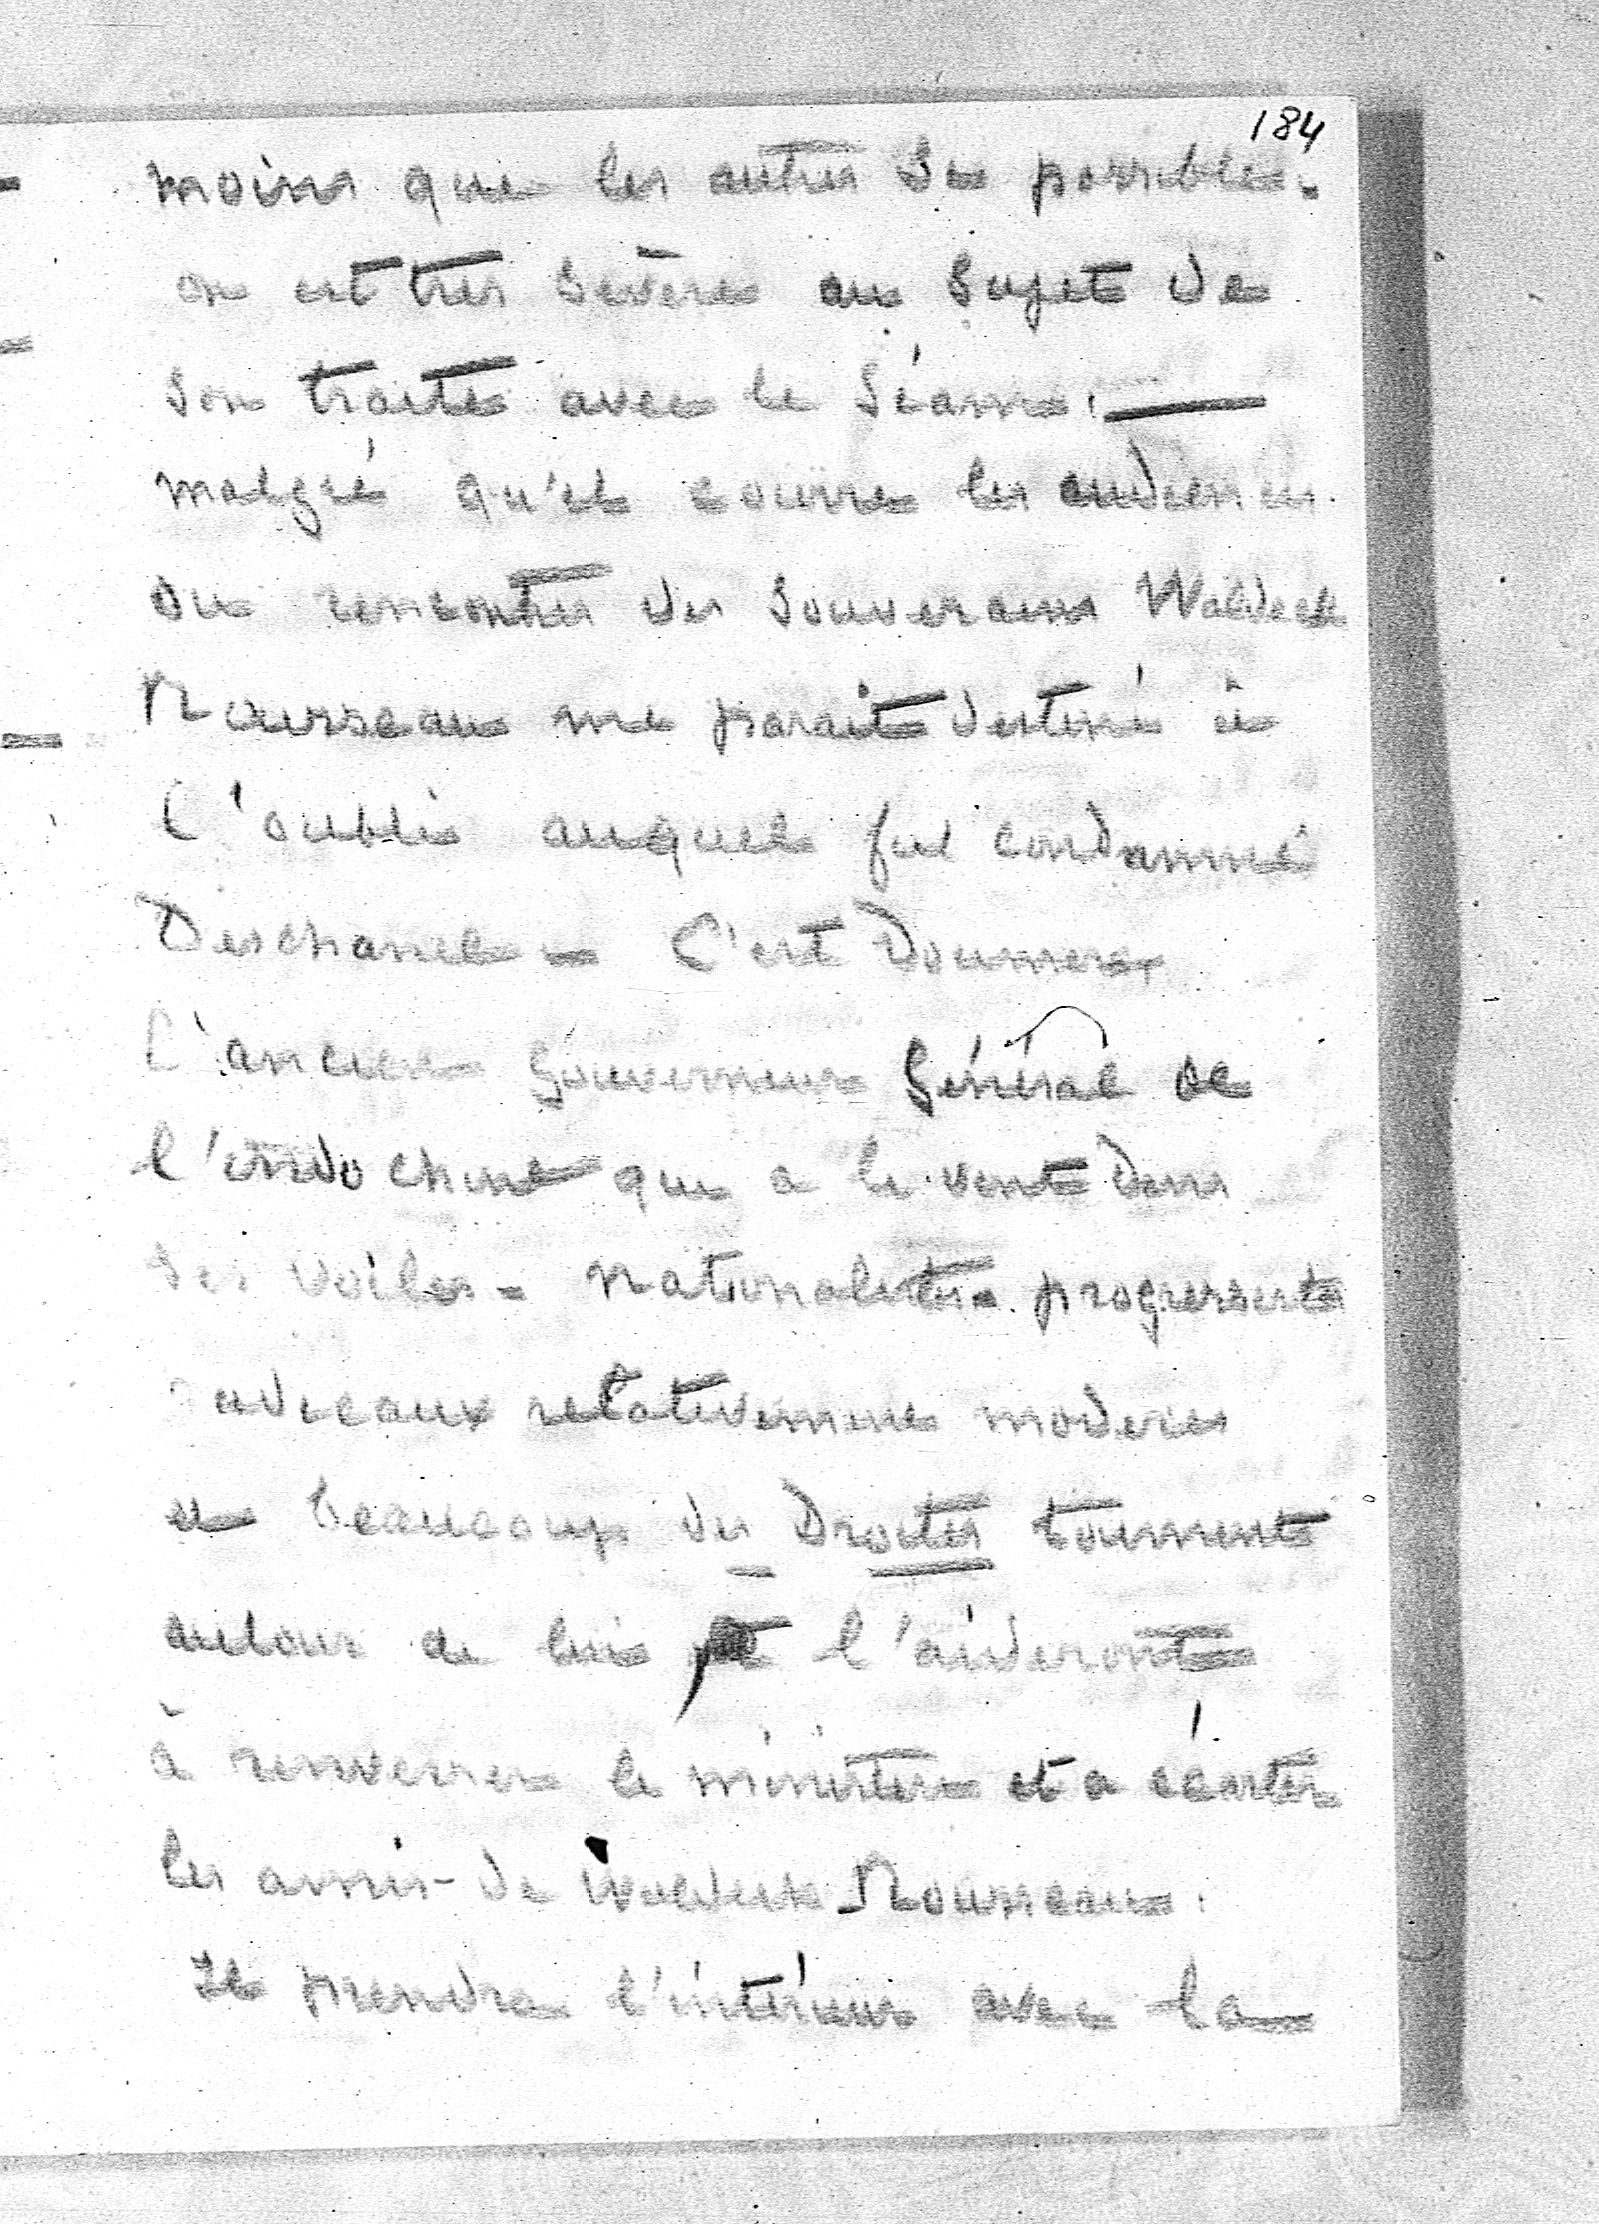 184
moins que les autres si possible.
on est très sévère au sujet de
son traité avec le Siam.
malgré qu'il coure les audiences
ou rencontres des souverains Waldeck
Rousseau me parait destiné à
l'oubli auquel fut condamné
Deschanel - C'est Doumer
l'ancien Gouverneur Général de
l'indo chine qui a le vent dans
ses voiles - nationalistes progressistes
radicaux relativement modérés
et beaucoup des Droites tournent
autour de lui et l'aideront
à renverser le ministère et a écarter
les amis de Waldeck Rousseau.
Il prendra l'intérieur avec la